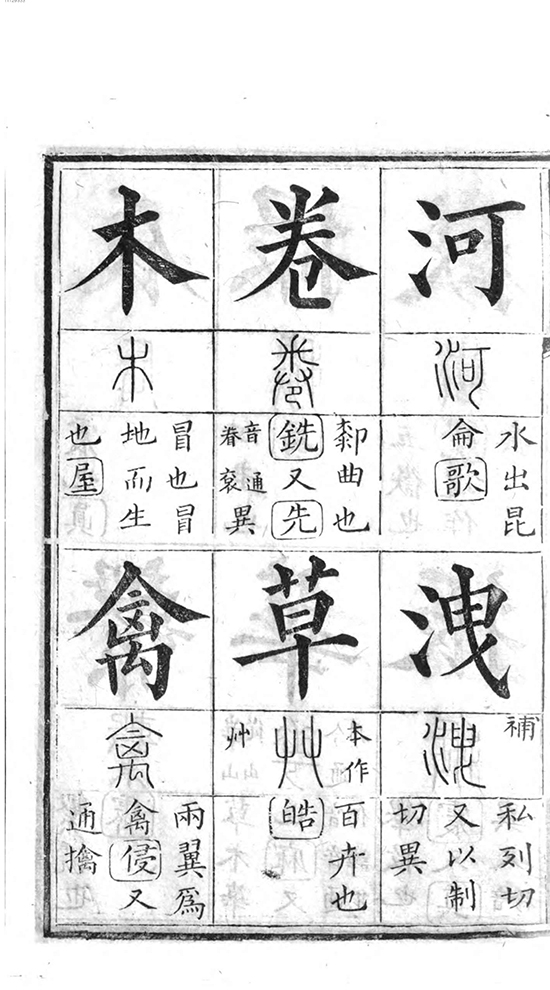 河
河
水出昆
侖歌
洩
補
洩
私列切
又以制
切異
卷
卷
厀曲也
銑又先
音眷
通袞
異
草
本作
艸
艸
百卉也
皓
木
木
冒也冒
地而生
也屋
禽
禽
兩翼爲
禽侵又
通擒